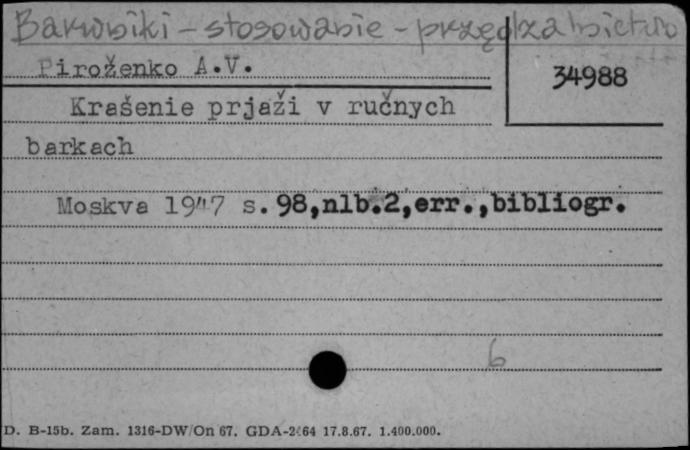 Barwniki - stosowanie - przędzalnictwo
Piroženko A.V.
34988
Krašenie prjaži v ručnych
barkach
Moskva 1947 s. 98,nlb.2,err.,bibliogr.
6
D. B-15b. Zam. 1316-DW/On 67. GDA-2/64 17.8.67. 1.400.000.